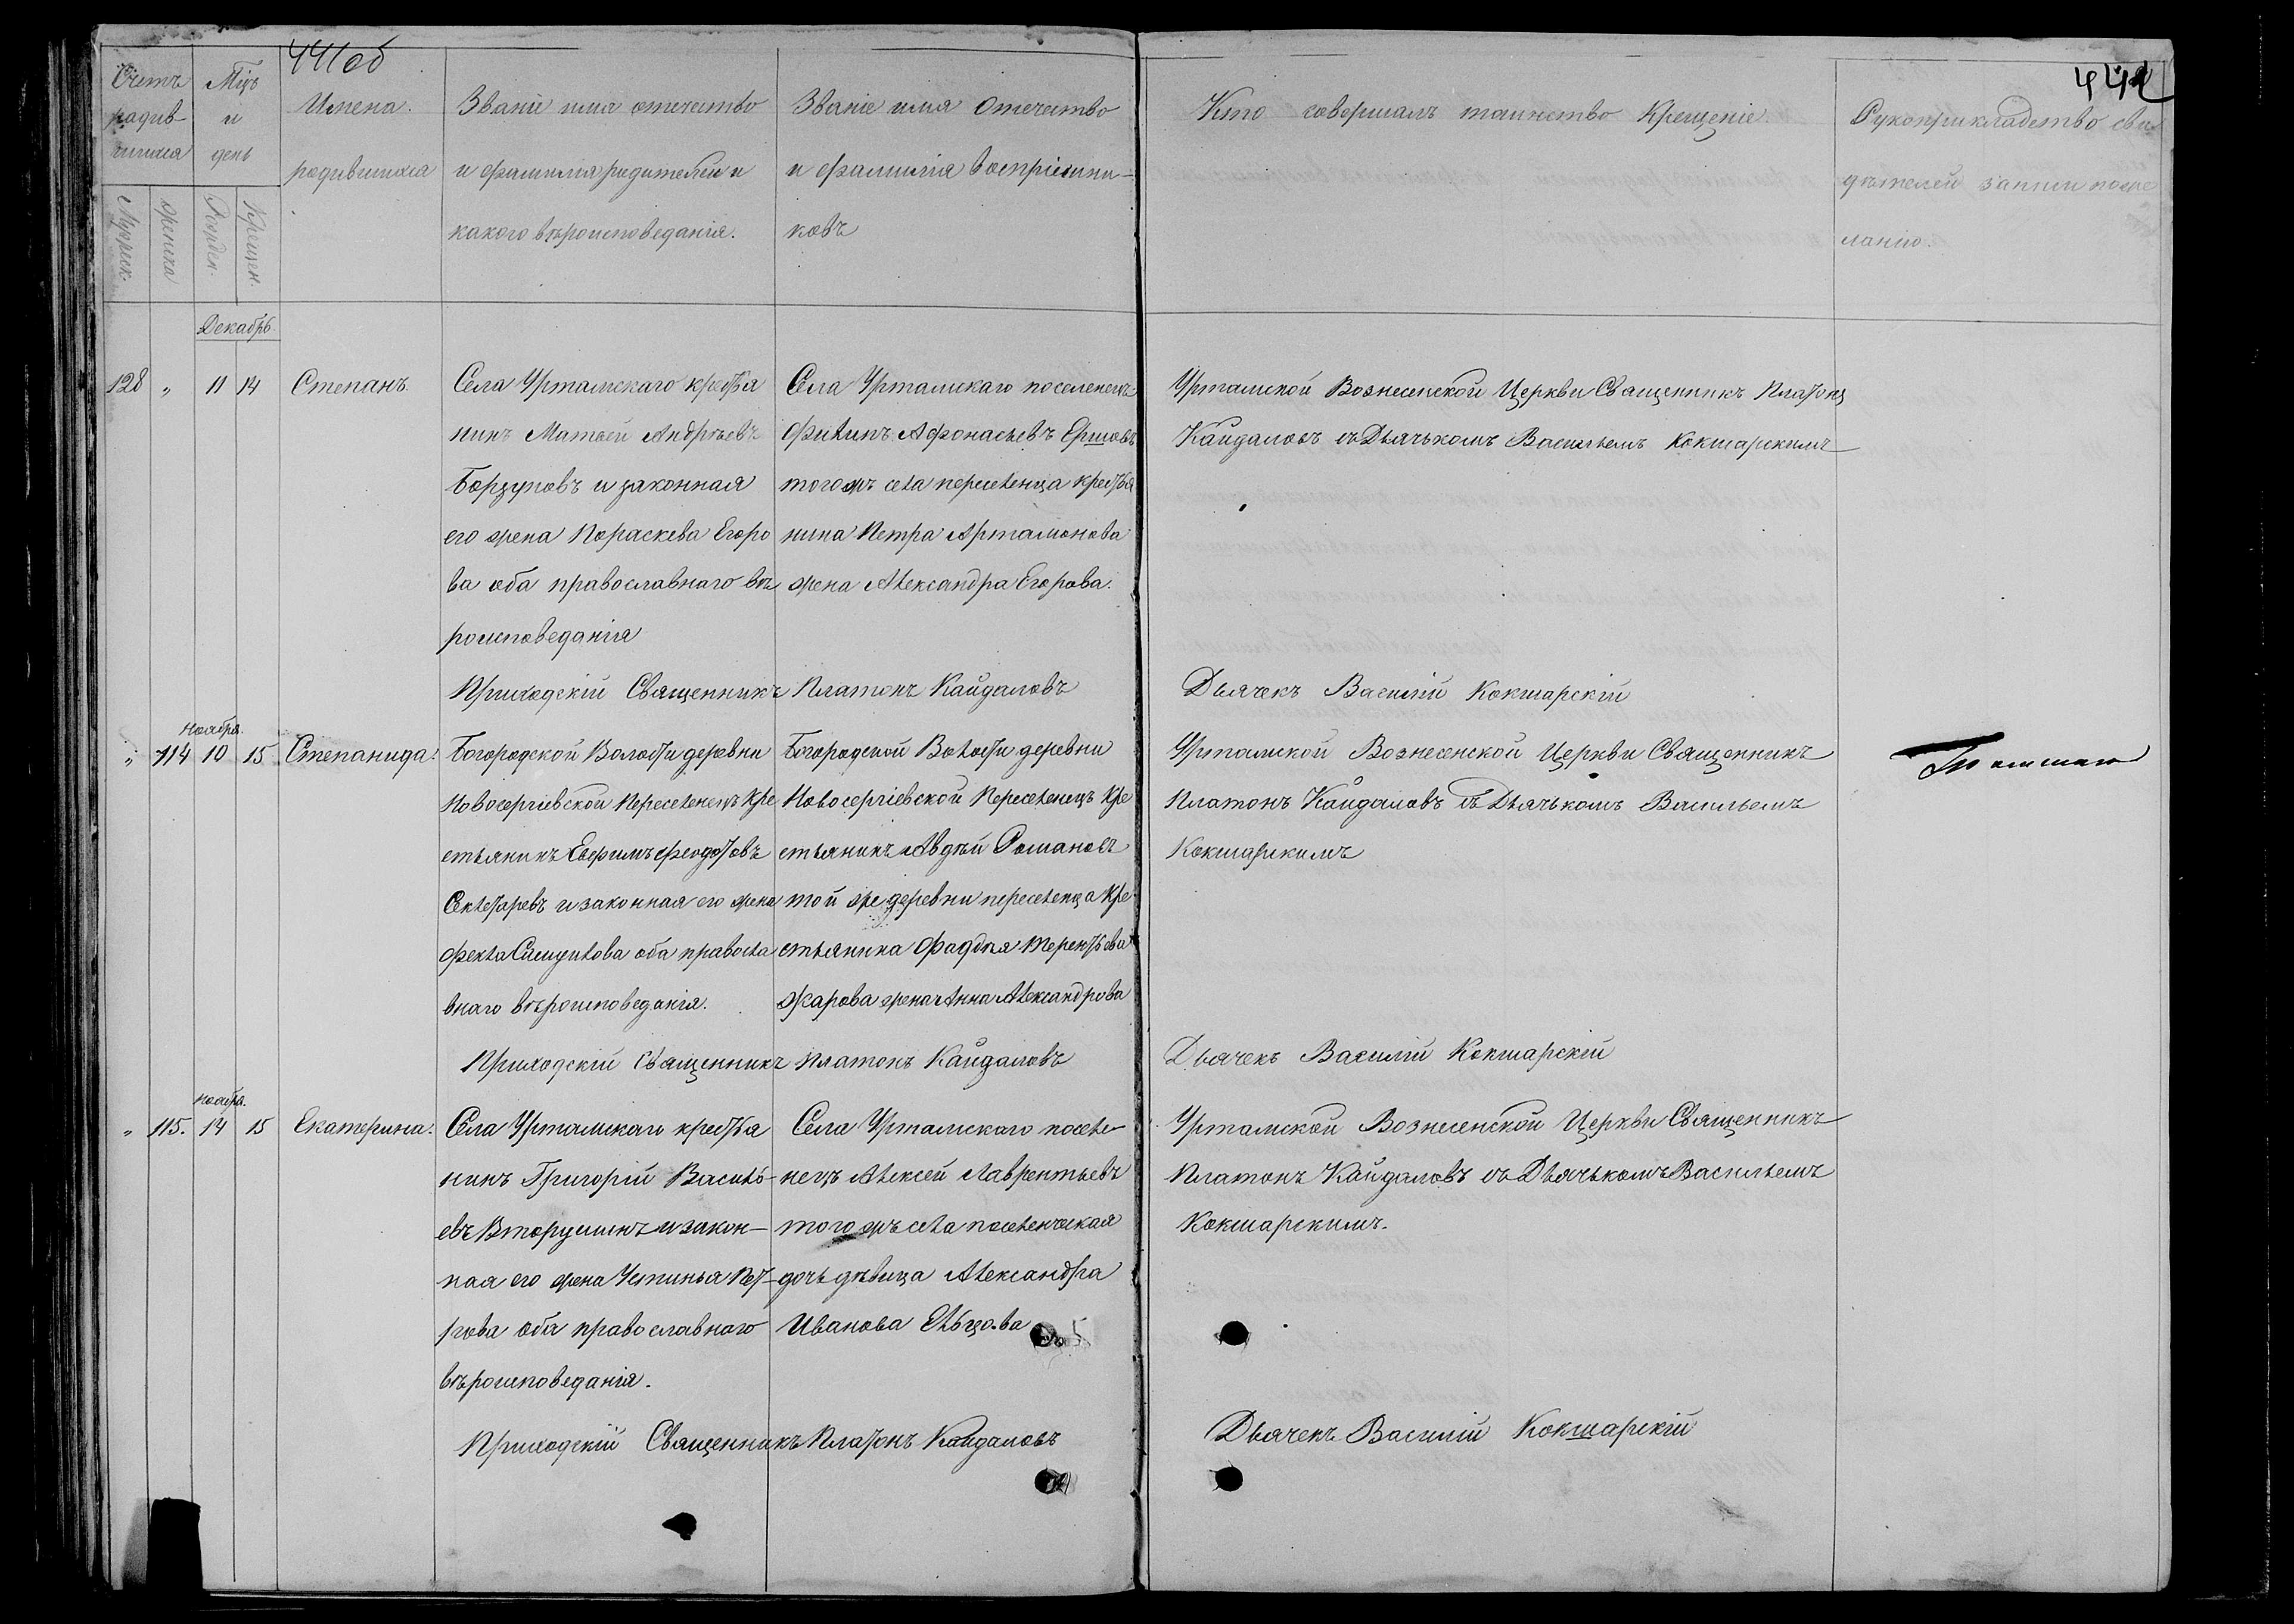 441об
442
Счетъ
родив-
шихся
Мужеск.
женска
Мцъ
и
день
Рожден.
Крещен.
Имена
родившихся
Званіе имя отечество
и фамилія родителей и
какого вѣроисповеданія.
Званіе имя Отечество
и фамилія воспріемни-
ковъ
Кто совершалъ таинство Крещеніе
Рукоприкладство сви-
дѣтелей записи по же
ланію.
Декабрь
128 " 11 14
Степанъ
Села Уртамскаго крестья
нинъ Матвей Андрѣевъ
Борзуновъ и законная
его жена Пораскева Егоро
ва оба православнаго вѣ
роисповеданія
Села Уртамскаго поселенецъ
Филипъ Афонасьевъ Ершовъ
того жъ села переселенца крестья
нина Петра Артамонова
жена Александра Егорова.
Уртамской Вознесенской Церкви Священникъ Платонъ
Кайдаловъ съ Дьячькомъ Васильемъ Кокшарскимъ
Приходскій Священникъ Платонъ Кайдаловъ
Дьячекъ Василій Кокшарскій
Ноября
" 114 10 15
Степанида.
Богородской Волости деревни
Новосергіевской Переселенецъ Кре
стьянинъ Евфимъ Феодотовъ
Секлетаревъ и законная его жена
Фекла Самуилова оба правосла
внаго вѣроисповеданія.
Богородской Волости деревни
Новосергіевской Переселенецъ Кре
стьянинъ Авдѣй Романовъ
той же деревни переселенца Кре
стьянина Фаддея Терентьева
Жарова жена Анна Александрова
Уртамской Вознесенской Церкви Священникъ
Платонъ Кайдаловъ съ Дьячькомъ Васильемъ
Кокшарскимъ
Приходскій Священникъ Платонъ Кайдаловъ
Дьячекъ Василій Кокшарскій
Ноября.
" 115. 14 15
Екатерина.
Села Уртамскаго крестья
нинъ Григорій Василь-
евъ Вторушинъ и закон-
ная его жена Устинья Пет-
рова оба православнаго
вѣроисповеданія.
Села Уртамскаго поселе-
нецъ Алексей Лаврентьевъ
того жъ села поселенческая
дочь дѣвица Александра
Иванова Ельцова
Уртамской Вознесенской Церкви Священникъ
Платонъ Кайдаловъ съ Дьячькомъ Васильемъ
Кокшарскимъ.
Приходскій Священникъ Платонъ Кайдаловъ
Дьячекъ Василій Кокшарскій